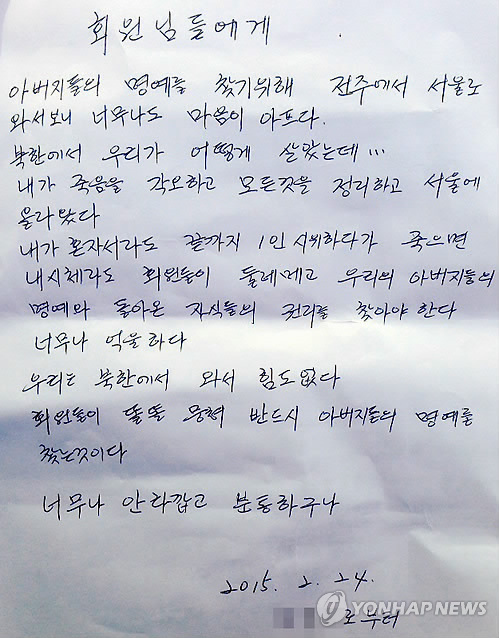 회원님들에게
아버지들의 명예를 찾기위해 전주에서 서울로
와서보니 너무나도 마음이 아프다.
북한에서 우리가 어떻게 살았는데...
내가 죽음을 각오하고 모든것을 정리하고 서울에
올라왔다
내가 혼자서라도 끝까지 1인시위하다가 죽으면
내시체라도 회원들이 둘레메고 우리의 아버지들의
명예와 돌아온 자식들의 권리를 찾아야 한다
너무나 억울하다
우리는 북한에서 와서 힘도없다
회원들이 똘똘 뭉쳐 반드시 아버지들의 명예를
찾는것이다
너무나 안타깝고 분통하구나
2015. 2. 24.
로부터
YONHAP NEWS